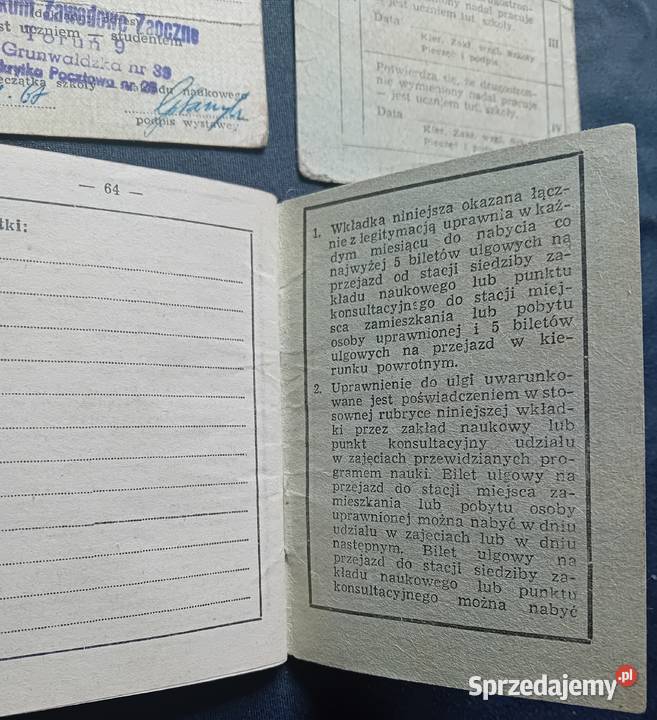 Zawodowe Zaoczne
st uczniem — studentem
Toruń 9
Grunwaldzka nr 39
Skrytka Pocztowa nr 28
pieczątka szkoły
naukowego
podpis wystawcy
nadal pracuje
jest uczniem tut. szkoły
Data
Kier. Zakł. wzgl. Szkoły
Pieczęć i podpis
III
Potwierdza się, że drugostron-
nie wymieniony nadal pracuje
— jest uczniem tut. szkoły.
Data
Kier. Zakł. wzgl. Szkoły
Pieczęć i podpis
IV
— 64 —
tki:
1. Wkładka niniejsza okazana łącz-
nie z legitymacją uprawnia w każ-
dym miesiącu do nabycia co
najwyżej 5 biletów ulgowych na
przejazd od stacji siedziby za-
kładu naukowego lub punktu
konsultacyjnego do stacji miej-
sca zamieszkania lub pobytu
osoby uprawnionej i 5 biletów
ulgowych na przejazd w kie-
runku powrotnym.
2. Uprawnienie do ulgi uwarunko-
wane jest poświadczeniem w sto-
sownej rubryce niniejszej wkład-
ki przez zakład naukowy lub
punkt konsultacyjny udziału
w zajęciach przewidzianych pro-
gramem nauki. Bilet ulgowy na
przejazd do stacji miejsca za-
mieszkania lub pobytu osoby
uprawnionej można nabyć w dniu
udziału w zajęciach lub w dniu
następnym. Bilet ulgowy na
przejazd do stacji siedziby za-
kładu naukowego lub punktu
konsultacyjnego można nabyć
Sprzedajemy.pl